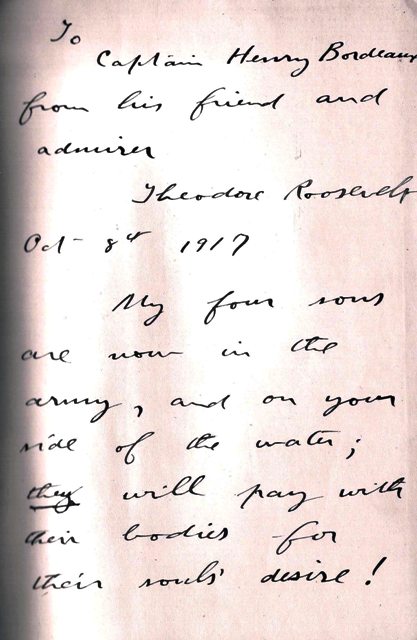 To
Captain Henry Bordeaux
from his friend and
admirer
Theodore Roosevelt
Oct 8th 1917
My four sons
are now in the
army, and on your
side of the water;
they will pay with
their bodies for
their souls' desire!